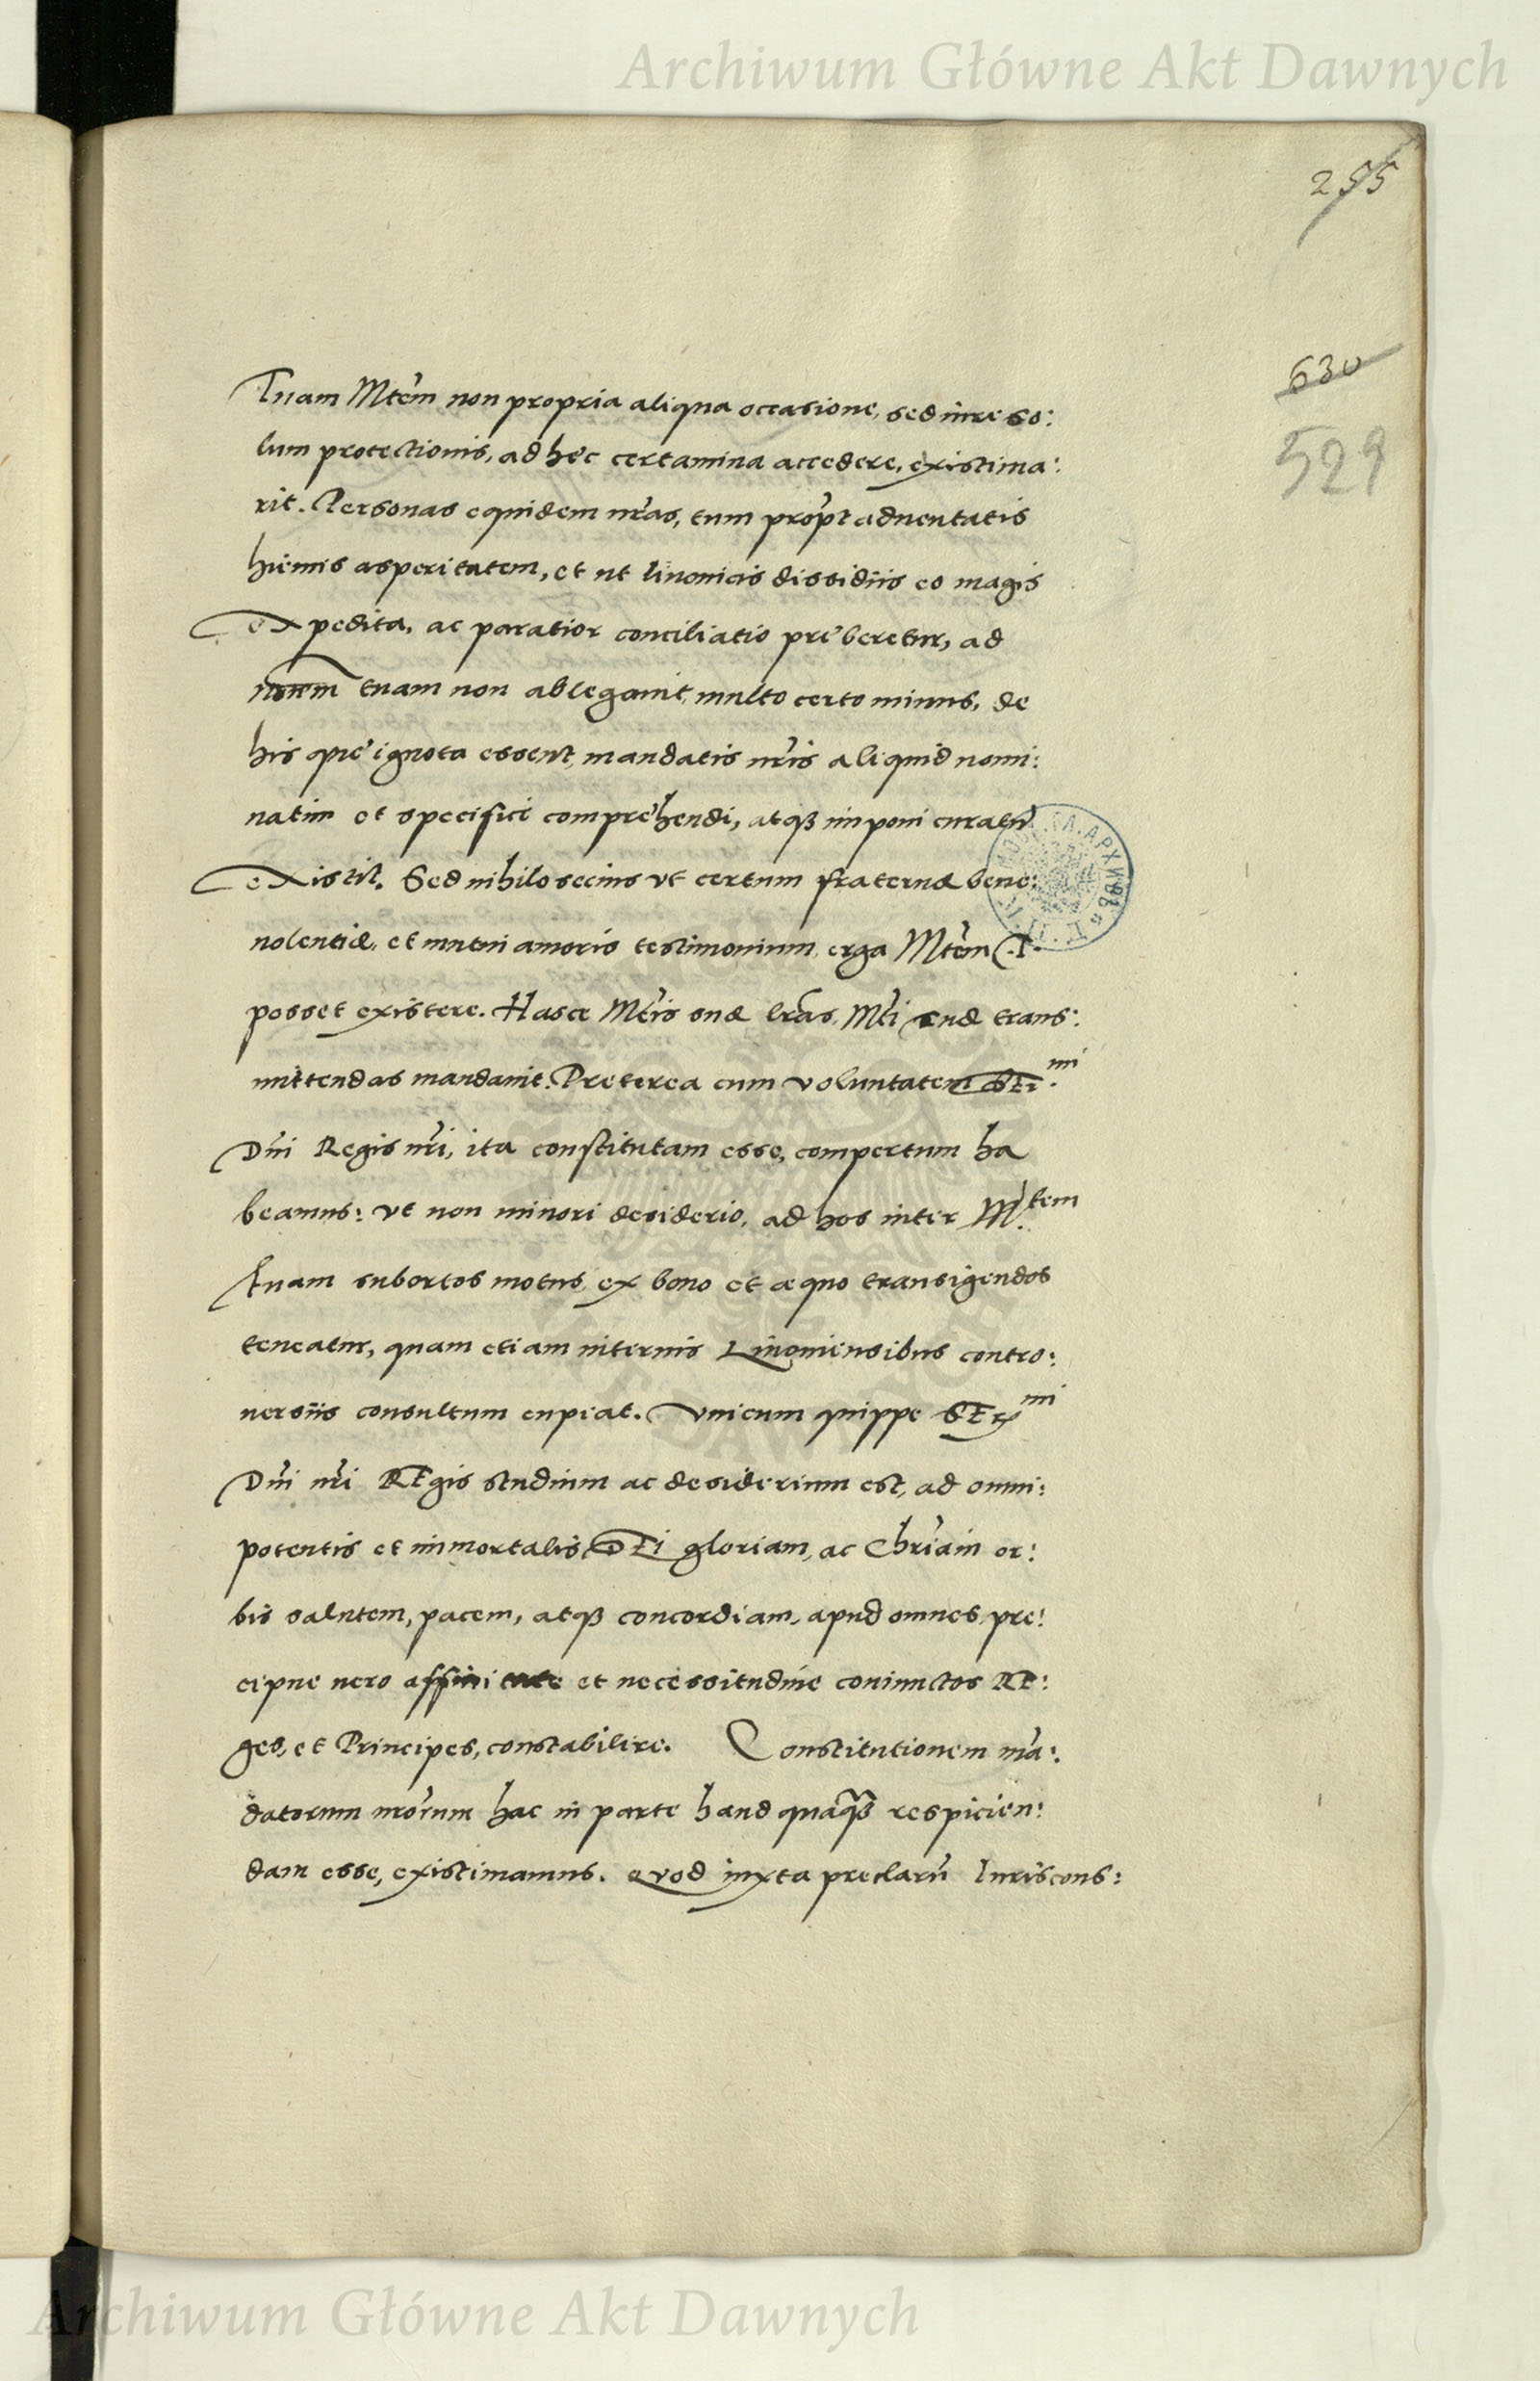 Archiwum Główne Akt Dawnych
255
630
529
Tuam Mtem non propria aliqua occasione, sed iure so:
lum protectionis, ad hec certamina accedere, existima:
rit. Personas equidem nras, tum propt aduentatis
hiemis asperitatem, et ut liuonicis dissidiis eo magis
expedita, ac paratior conciliatio preberetur, ad
tuam non ablegauit, multo certo minus, de
his que ignota essent, mandatis nris aliquid nomi:
natim et specifici comprehendi, atqȝ imponi
existit. Sed nihilo secius vt certum fraternæ bene:
uolentiæ, et mutui amoris testimonium, erga Mtem T.
posset existere. Hasce Mtis suæ lras, Mti tuæ trans:
mittendas mandauit. Preterea cum voluntatem SEr.mi
Dni Regis nri, ita constitutam esse, compertum ha
beamus: vt non minori desiderio, ad hos inter M.tem
Tuam subortos motus, ex bono et æquo transigendos
teneatur, quam etiam internis Liuoniensibus contro:
uersiis consultum cupiat. Vnicum quippe SEr.mi
Dni nri REgis studium ac desiderium est, ad omni:
potentis et immortalis DEi gloriam, ac Chriani or:
bis salutem, pacem, atqȝ concordiam, apud omnes, pre:
cipue uero affinitate et necessitudine coniunctos RE:
ges, et Principes, constabilire. Constitutionem ma:
datorum nrorum hac in parte haud quaqȝ respicien:
dam esse, existimamus. Quod iuxta preclaru Iuriscons:
Archiwum Główne Akt Dawnych